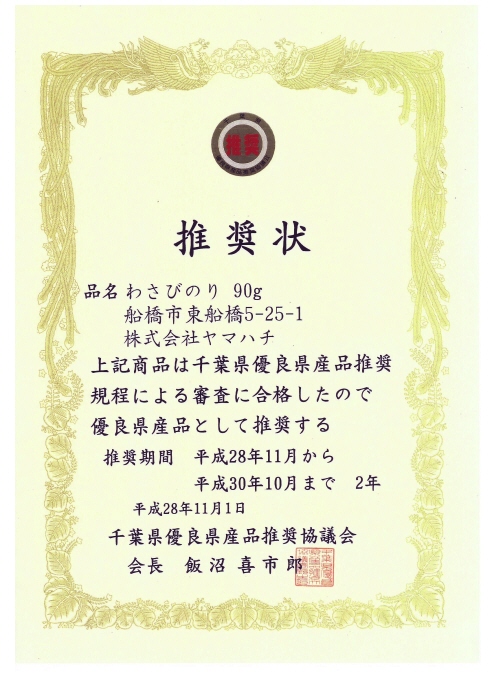 推奨
推奨状
品名 わさびのり 90g
船橋市東船橋5-25-1
株式会社ヤマハチ
上記商品は千葉県優良県産品推奨
規程による審査に合格したので
優良県産品として推奨する
推奨期間 平成28年11月から
平成30年10月まで 2年
平成28年11月1日
千葉県優良県産品推奨協議会
会長 飯沼喜市郎